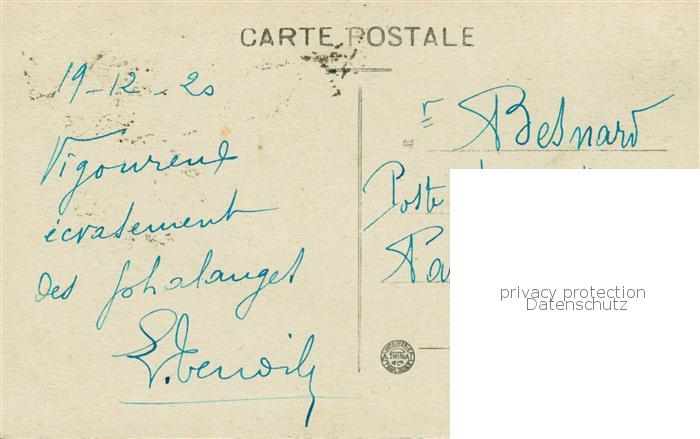 CARTE POSTALE
19-12-20
Vigoureux
écrasement
des phalanges
r Besnard
Poste
Pa
privacy protection
Datenschutz